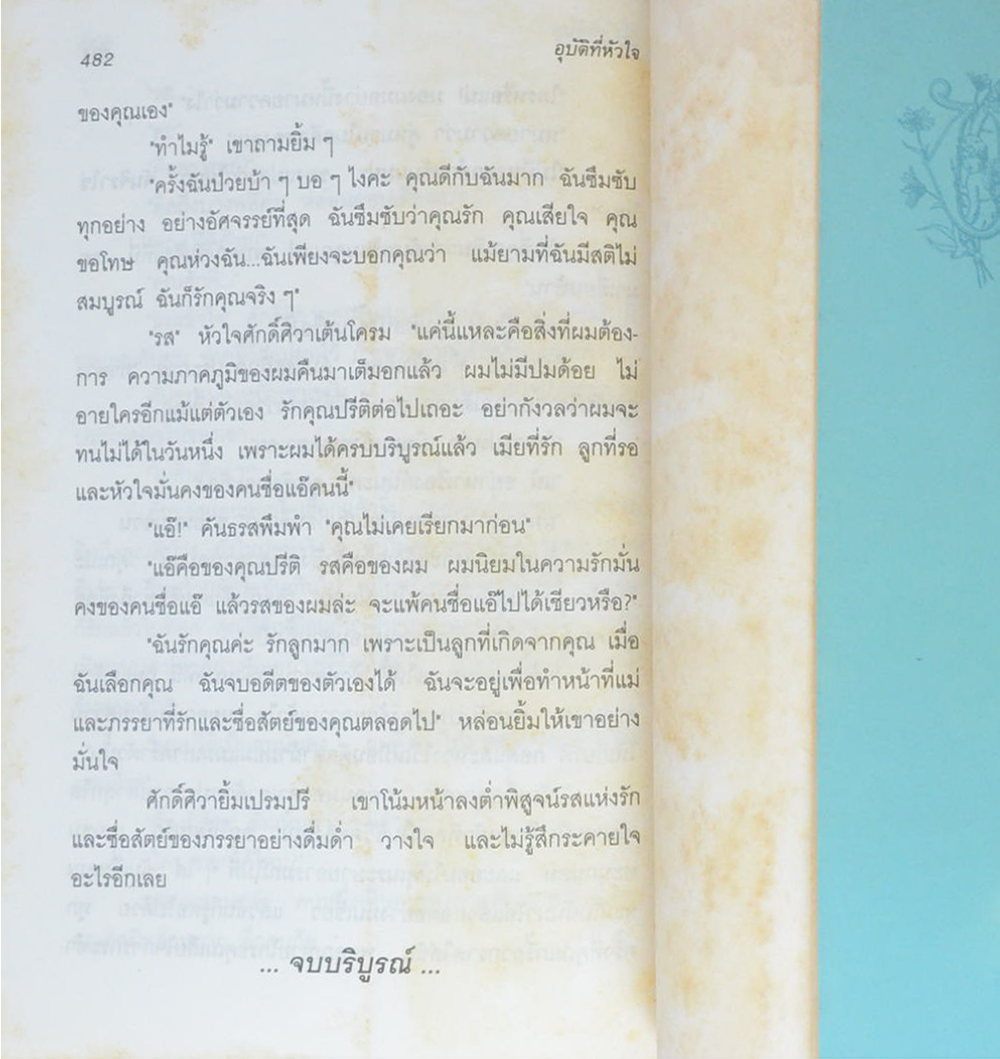 482
อุบัติที่หัวใจ
ของคุณเอง"
"ทำไมรู้" เขาถามยิ้ม ๆ
"ครั้งฉันป่วยบ้า ๆ บอ ๆ ไงคะ คุณดีกับฉันมาก ฉันซึมซับ
ทุกอย่าง อย่างอัศจรรย์ที่สุด ฉันซึมซับว่าคุณรัก คุณเสียใจ คุณ
ขอโทษ คุณห่วงฉัน...ฉันเพียงจะบอกคุณว่า แม้ยามที่ฉันมีสติไม่
สมบูรณ์ ฉันก็รักคุณจริง ๆ"
"รส" หัวใจศักดิ์ศิวาเต้นโครม "แค่นี้แหละคือสิ่งที่ผมต้อง-
การ ความภาคภูมิของผมคืนมาเต็มอกแล้ว ผมไม่มีปมด้อย ไม่
อายใครอีกแม้แต่ตัวเอง รักคุณปรีติต่อไปเถอะ อย่ากังวลว่าผมจะ
ทนไม่ได้ในวันหนึ่ง เพราะผมได้ครบบริบูรณ์แล้ว เมียที่รัก ลูกที่รอ
และหัวใจมั่นคงของคนชื่อแอ๊คนนี้"
"แอ๊!" คันธรสพึมพำ "คุณไม่เคยเรียกมาก่อน"
"แอ๊คือของคุณปรีติ รสคือของผม ผมนิยมในความรักมั่น
คงของคนชื่อแอ๊ แล้วรสของผมล่ะ จะแพ้คนชื่อแอ๊ไปได้เชียวหรือ?"
"ฉันรักคุณค่ะ รักลูกมาก เพราะเป็นลูกที่เกิดจากคุณ เมื่อ
ฉันเลือกคุณ ฉันจบอดีตของตัวเองได้ ฉันจะอยู่เพื่อทำหน้าที่แม่
และภรรยาที่รักและซื่อสัตย์ของคุณตลอดไป" หล่อนยิ้มให้เขาอย่าง
มั่นใจ
ศักดิ์ศิวายิ้มเปรมปรี เขาโน้มหน้าลงต่ำพิสูจน์รสแห่งรัก
และซื่อสัตย์ของภรรยาอย่างดื่มด่ำ วางใจ และไม่รู้สึกระคายใจ
อะไรอีกเลย
... จบบริบูรณ์ ...